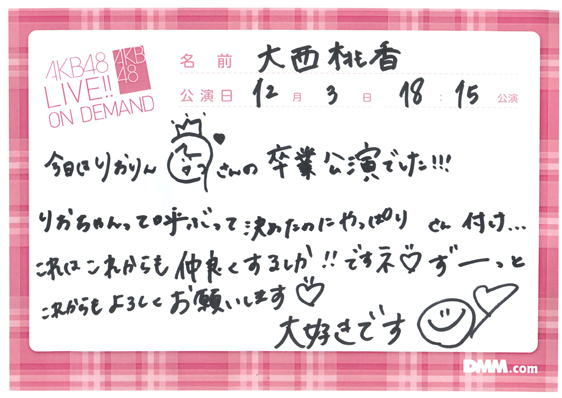 AKB48
LIVE!!
ON DEMAND
AKB
48
名前 大西桃香
公演日 12月3日 18:15公演
今日はりおりん さんの卒業公演でした!!!
りおちゃんって呼ぶって決めたのにやっぱり さん付け...
これはこれからも仲良くするしか!!ですネ♡ずーっと
これからもよろしくお願いします♡
大好きです
DMM.com